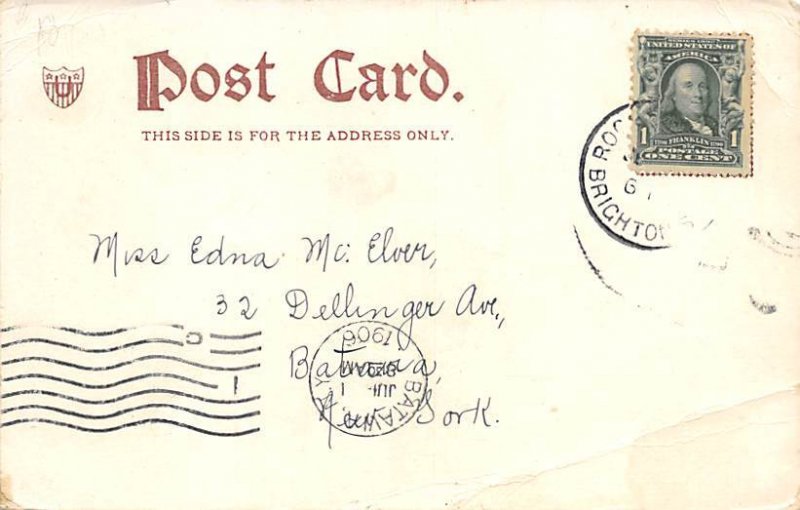 Post Card.
THIS SIDE IS FOR THE ADDRESS ONLY.
SERIES 1902
UNITED STATES OF
AMERICA
1 FRANKLIN 1
POSTAGE
ONE CENT
BRIGHTON
Miss Edna Mc. Elver,
32 Dellinger Ave.,
Batavia,
New York.
1906
BATAVIA